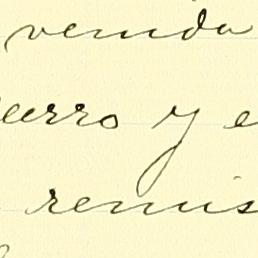 venida
erro y e
remis